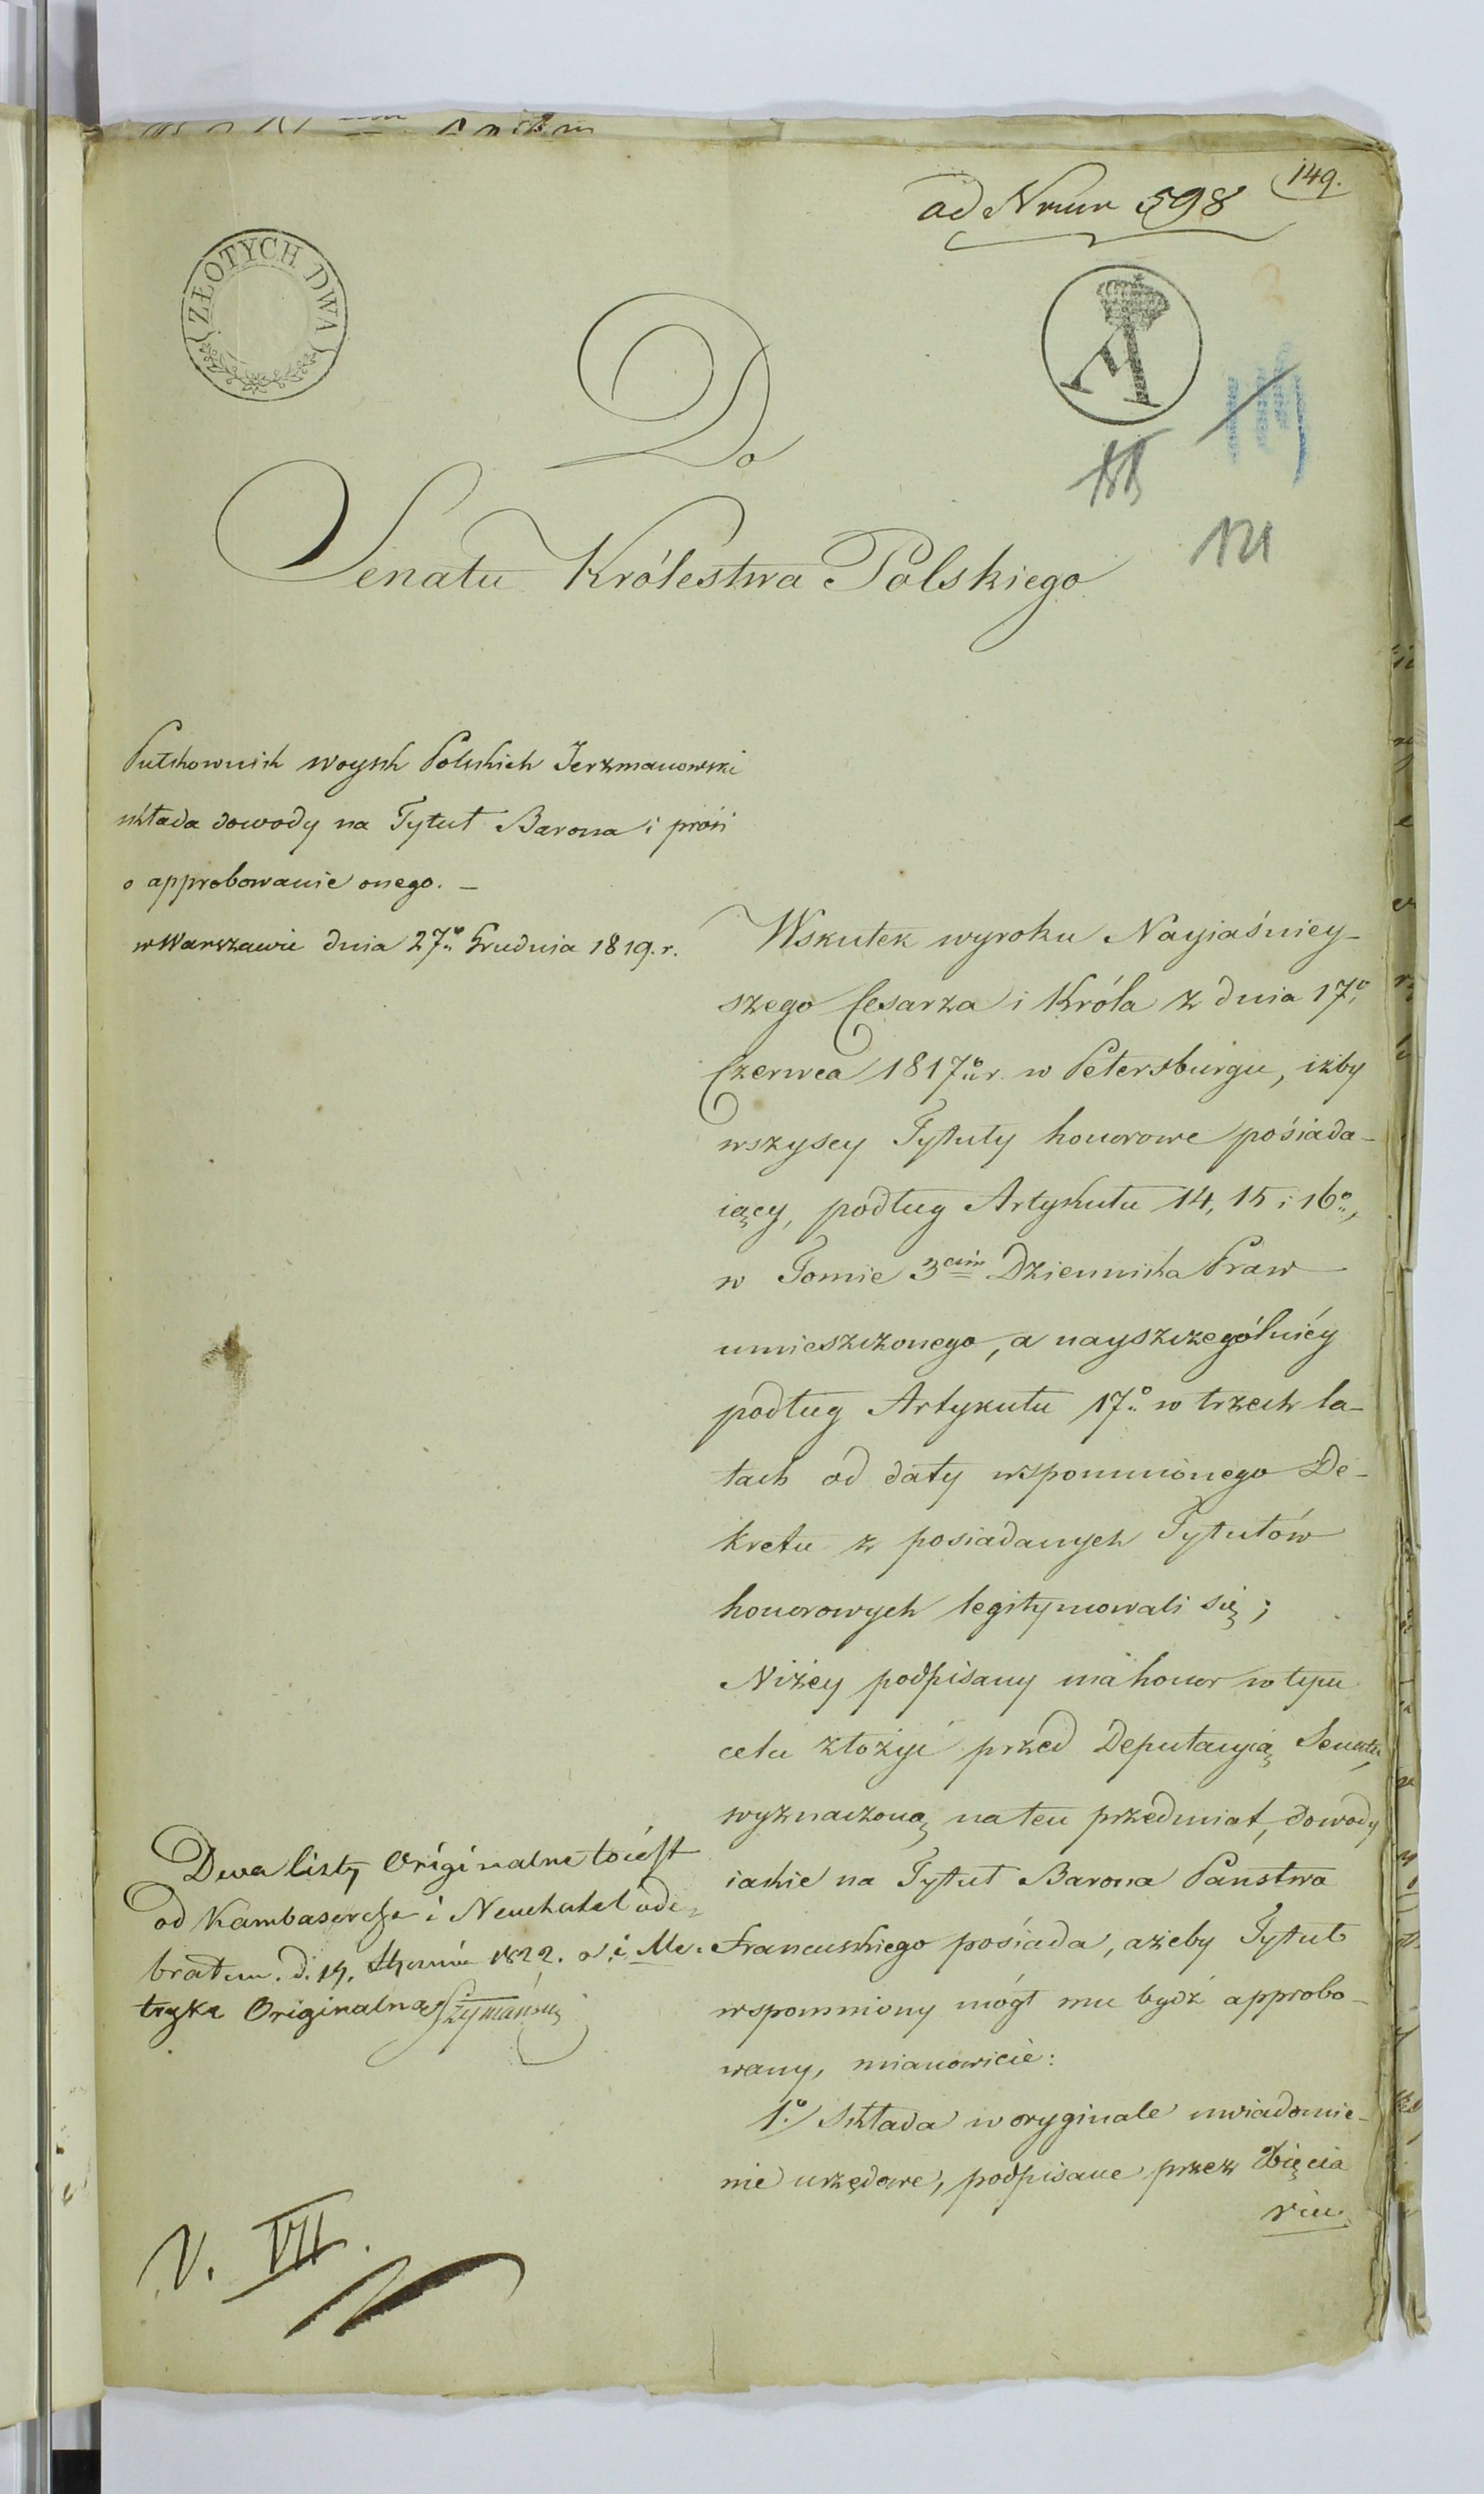 149.
ad Nrum 598
ZŁOTYCH DWA
A
Do
Senatu Królestwa Polskiego
121
Pułkownik woysk Polskich Jerzmanowski
składa dowody na Tytuł Barona i prosi
o approbowanie onego. –
w Warszawie dnia 27º Grudnia 1819. r.
Wskutek wyroku Nayiaśniey-
szego Cesarza i Króla z dnia 17º
Czerwca 1817º r. w Petersburgu, iżby
wszyscy Tytuły honorowe pośiada-
iący, podług Artykułu 14, 15 i 16º,
w Tomie 3cim Dziennika Praw
umieszczonego, a nayszczególniéy
podług Artykułu 17º w trzech la-
tach od daty wspomnionego De-
kretu z posiadanych Tytułów
honorowych legitymowali się;
Niżey podpisany ma honor w tym
celu złożyć przed Deputacyią Senatu,
wyznaczoną na ten przedmiot, dowody
iakie na Tytuł Barona Państwa
Francuskiego pośiada, ażeby Tytuł
wspomniony mógł mu bydź approbo-
wany, mianowicie:
1º/ Składa w oryginale uwiadomie-
nie urzędowe, podpisane przez Xięcia
Dwa listy Originalne to iest
od Kambasersza i Neuchatel ode-
brałem. d. 14. 1822. i Me-
trykę Originalną Szymański
V. VII.